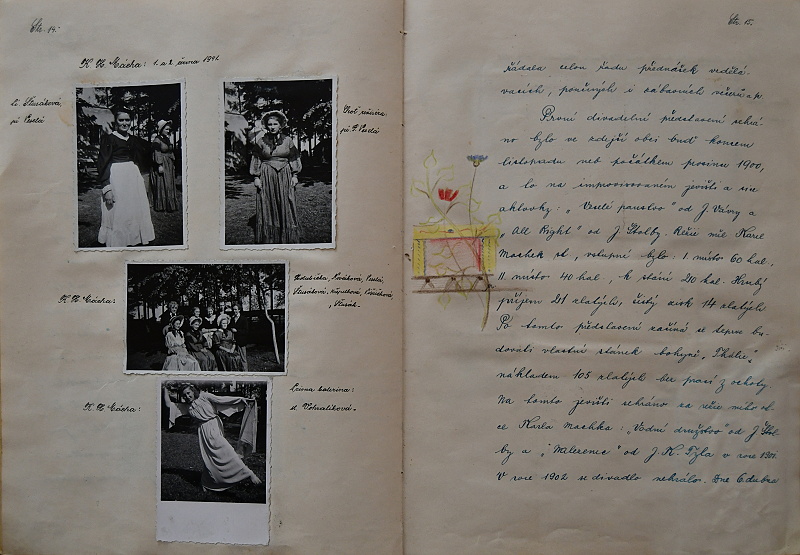 Str. 14.
K. H. Mácha: 1. a 2. června 1941.
sl. Slusáková,
pí Veselá
pí F. Veselá
K. H. Mácha:
Nováková, Veselá,
Slusáková,
K. H. Mácha:
sl. Vohralíková.
Str. 15.
řádala celou řadu přednášek vzdělá-
vacích, poučných i zábavných večerů a p.
První divadelní představení sehrá-
no bylo ve zdejší obci buď koncem
listopadu neb počátkem prosince 1900,
a to na improvisovaném jevišti a sice
aktovky: „Veselé panstvo" od J. Vávry a
„All Right" od J. Štolby. Režii měl Karel
Machek st., vstupné bylo: I. místo 60 hal.,
II. místo 40 hal., k stání 20 hal. Hrubý
příjem 21 zlatých, čistý zisk 14 zlatých.
Po tomto představení začíná se teprve bu-
dovati vlastní stánek bohyně „Thálie"
nákladem 105 zlatých bez prací z ochoty.
Na tomto jevišti sehráno za režie mého ot-
ce Karla Machka: „Vodní družstvo" od J. Štol-
by a „Milenec" od J. K. Tyla v roce 1901.
V roce 1902 se divadlo nehrálo. Dne 6. dubna